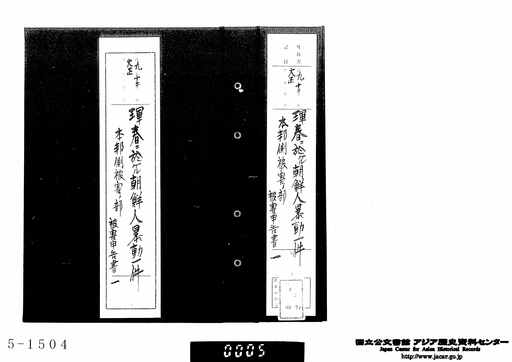 外務省
記録
大正
九、十
琿春ニ於ケル朝鮮人暴動一件
本邦側被害ノ部
被害申告書 一
大正
九、十
琿春ニ於ケル朝鮮人暴動一件
本邦側被害ノ部
被害申告書 一
5-1504
0005
国立公文書館 アジア歴史資料センター
Japan Center for Asian Historical Records
http://www.jacar.go.jp